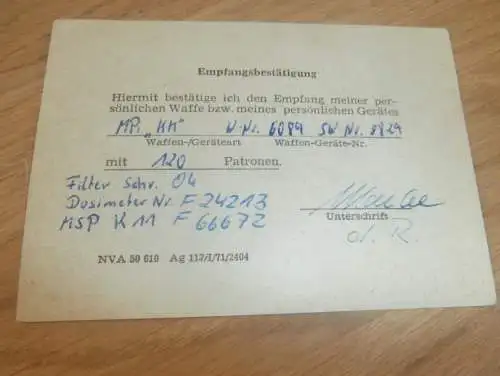 Empfangsbestätigung
Hiermit bestätige ich den Empfang meiner per-
sönlichen Waffe bzw. meines persönlichen Gerätes
MPi "KM" W-Nr. 6089 SW Nr. 8829
Waffen-/Geräteart Waffen-Geräte-Nr.
mit 120 Patronen.
Filter Schr. 04
Dosimeter Nr. F 24213
MSP K 11 F 66672
Unterschrift
d. R.
NVA 50 610 Ag 117/I/71/2404